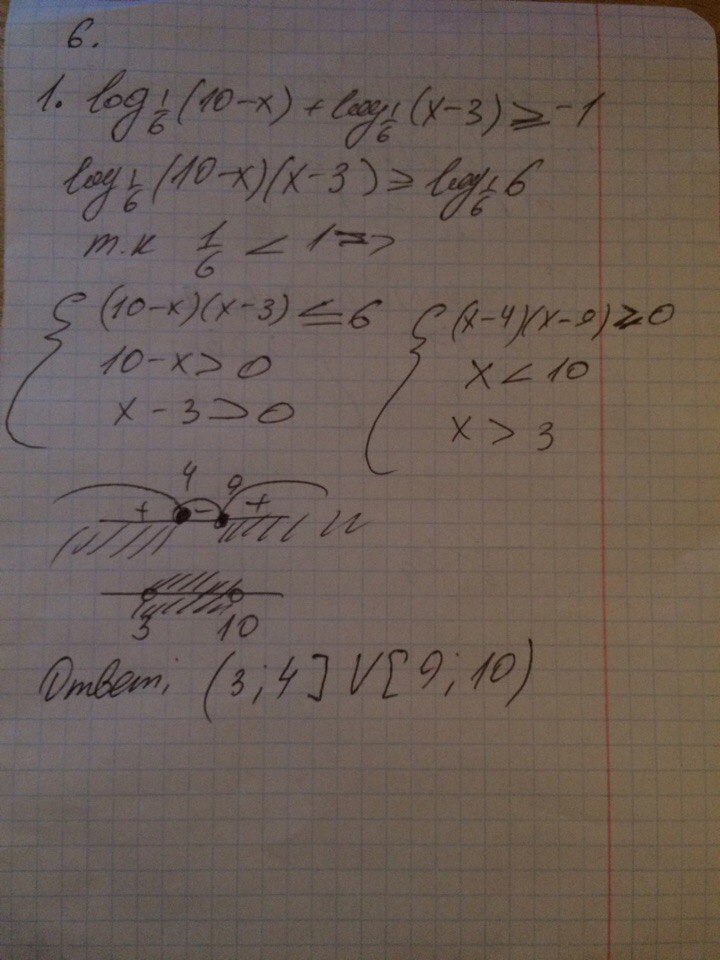 6.
1. log 1/6 (10-x) + log 1/6 (x-3) ≥ -1
log 1/6 (10-x)(x-3) ≥ log 1/6 6
т.к 1/6 < 1 =>
{ (10-x)(x-3) ≤ 6
10-x > 0
x-3 > 0
{ (x-4)(x-9) ≥ 0
x < 10
x > 3
4 9
+ - +
И
3 10
Ответ; (3;4] V [9;10)